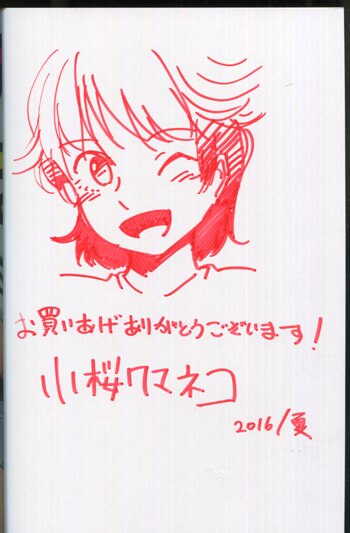 お買いあげありがとうございます！
小桜クマネコ
2016/夏